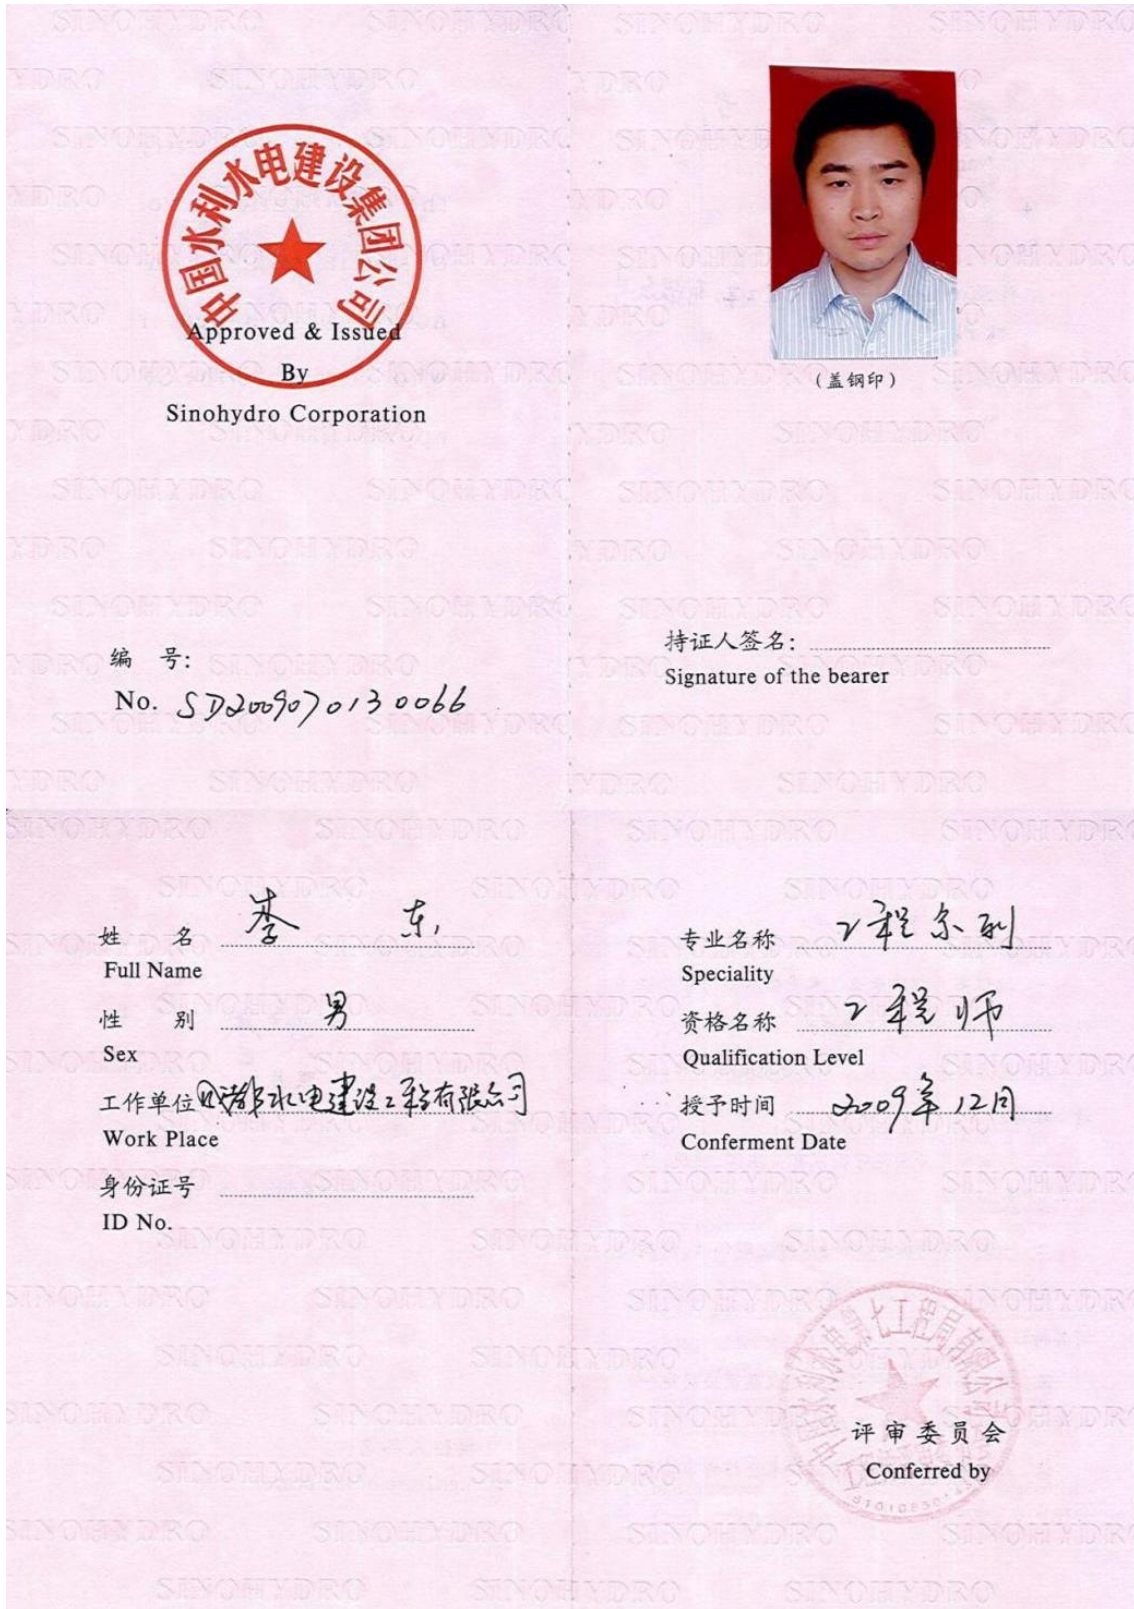 中国水利水电建设集团公司
Approved & Issued
By
Sinohydro Corporation
编 号:
No. SD2009070130066
(盖钢印)
持证人签名:
Signature of the bearer
姓 名 李 东
Full Name
性 别 男
Sex
工作单位 水电建设工程有限公司
Work Place
身份证号
ID No.
专业名称 工程系列
Speciality
资格名称 工程师
Qualification Level
授予时间 2009年12月
Conferment Date
中国水利水电第七工程局有限公司
评审委员会
Conferred by
SINOHYDRO